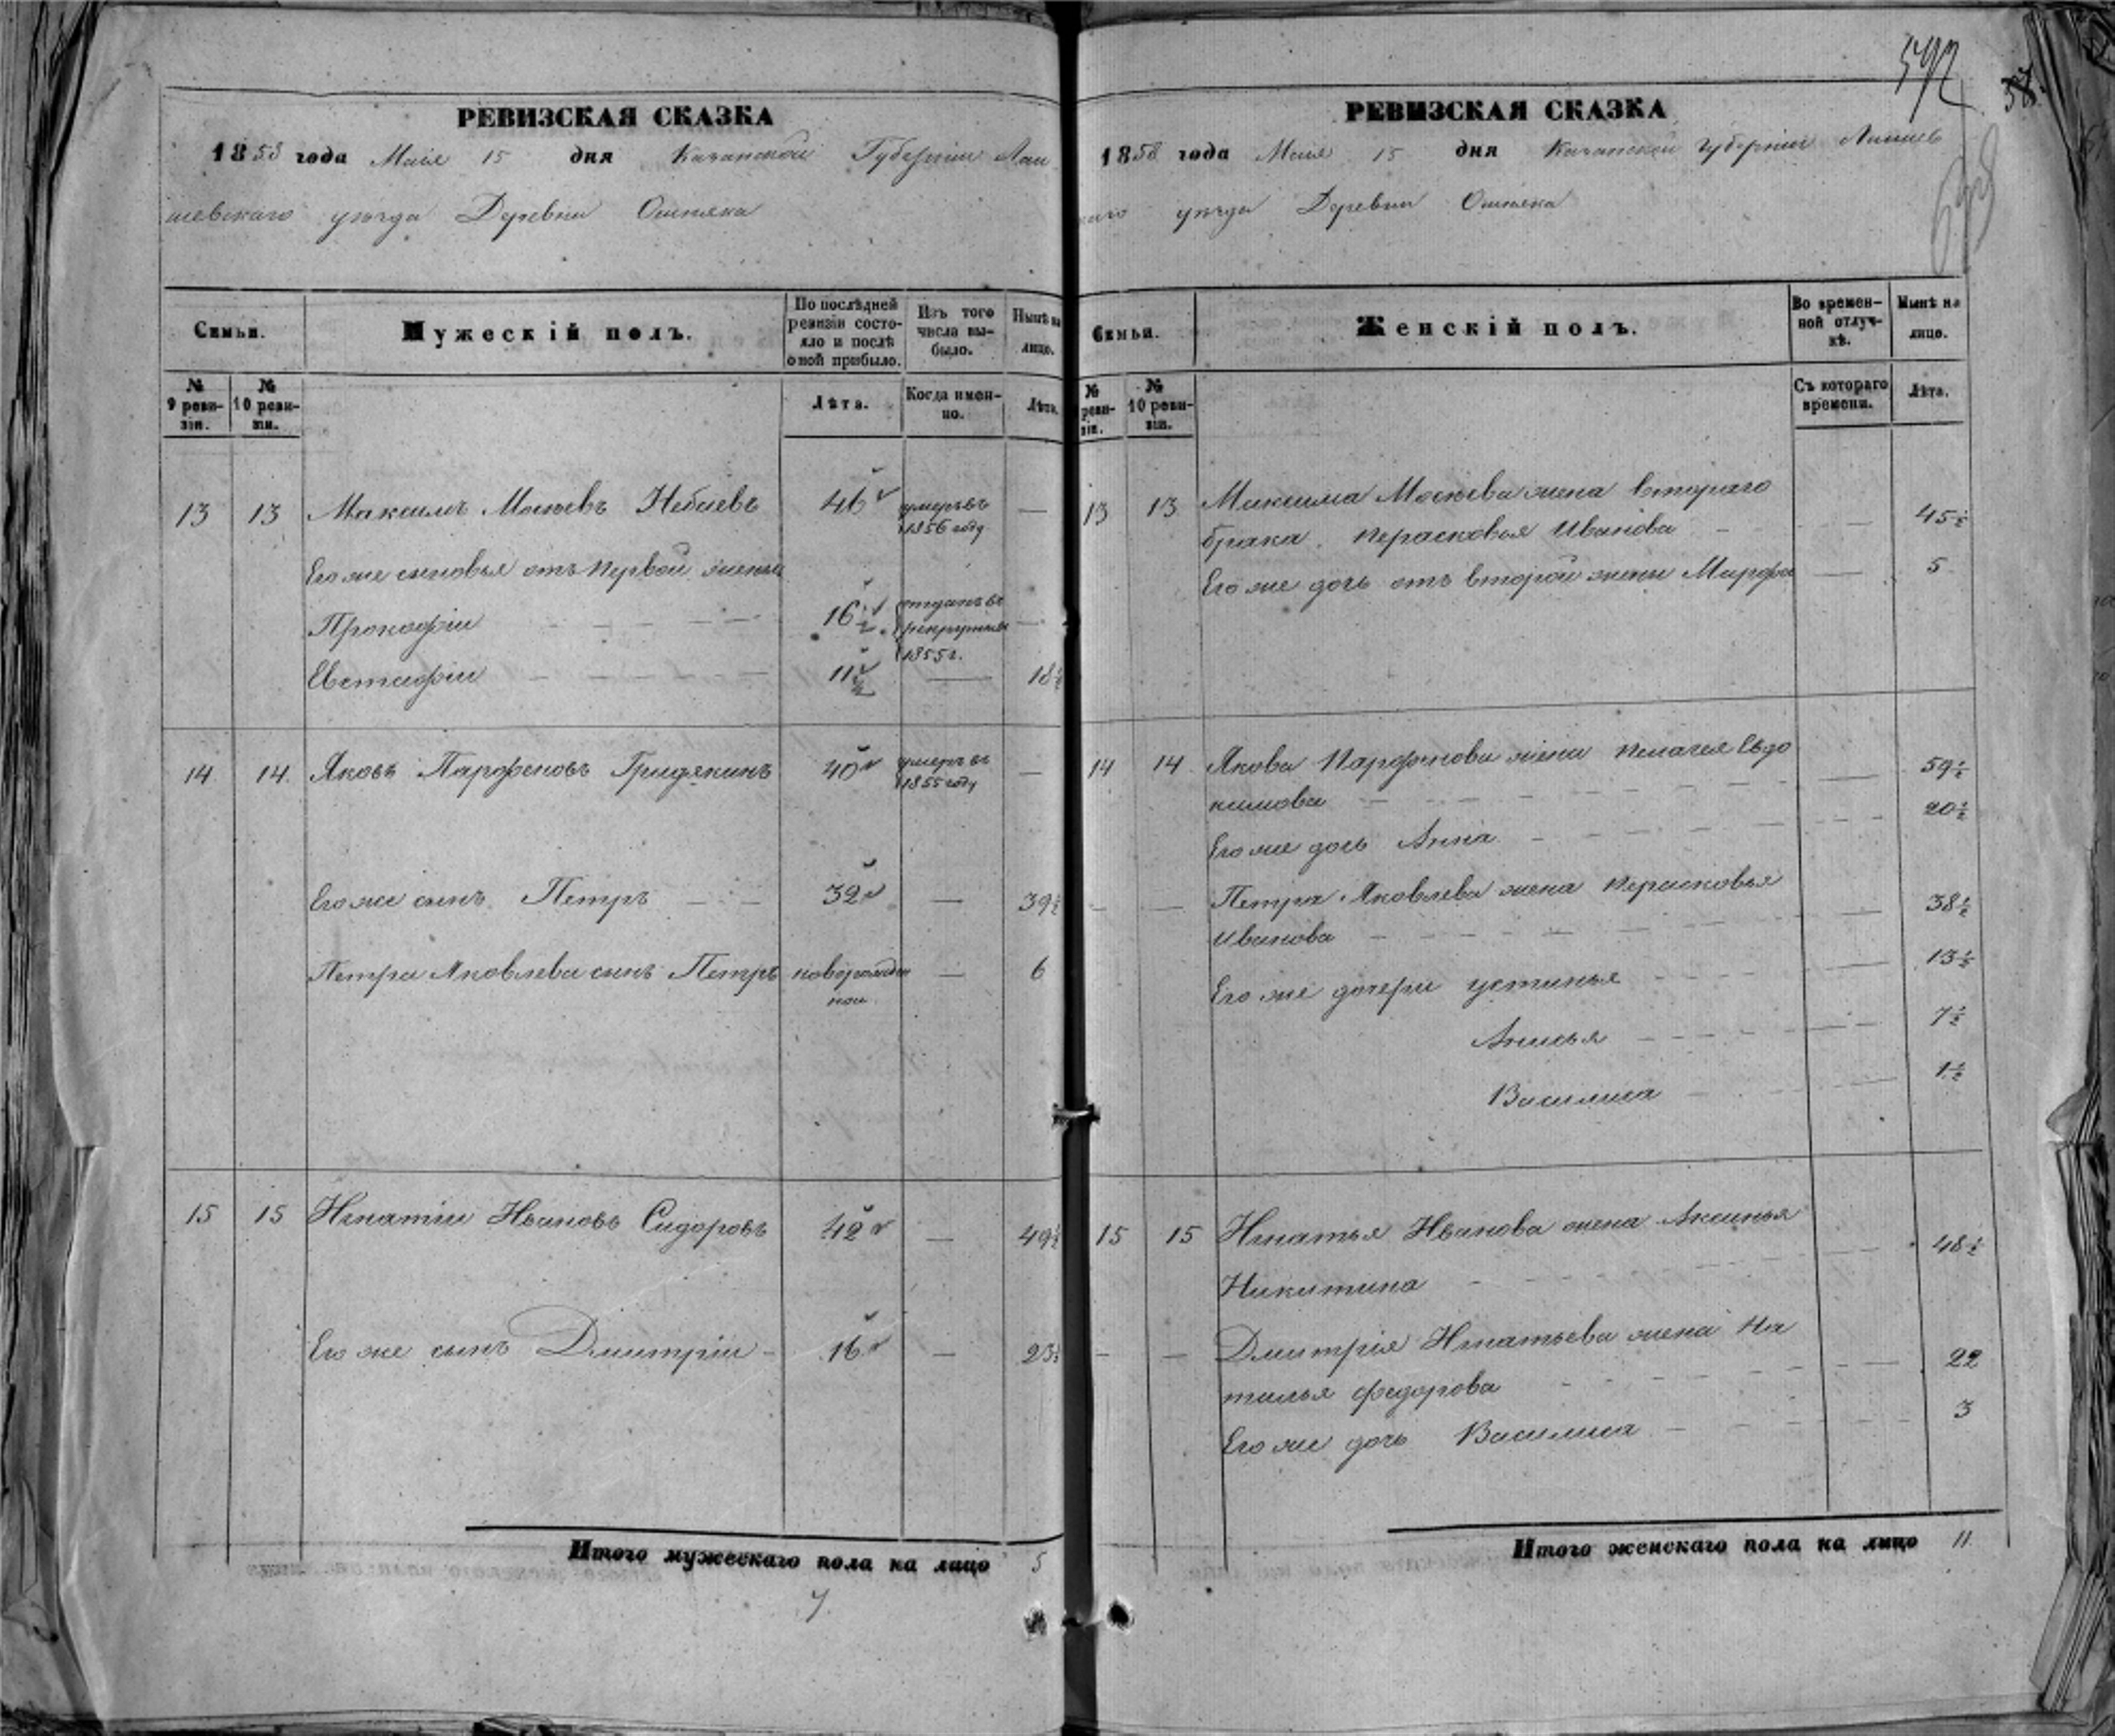 РЕВИЗСКАЯ СКАЗКА
1858 года Маія 15 дня Казанской Губерніи Лаи
шевскаго уѣзда Деревни Ошняка
Семьи.
Мужескій полъ.
По послѣдней ревизіи состояло и послѣ оной прибыло.
Изъ того числа выбыло.
Нынѣ на лицо.
№ 9 ревизіи.
№ 10 ревизіи.
Лѣта.
Когда именно.
Лѣта.
13 13 Максимъ Мосѣевъ 46 умеръ въ 1856 году —
Его же сыновья отъ первой жены
Прокофіи 16½ отданъ въ рекруты 1855 г. —
Евстафіи 11½ — 18½
14 14 Яковъ Парфеновъ Гридякинъ 40 умеръ въ 1855 году —
Его же сынъ Петръ 32 — 39½
Петра Яковлева сынъ Петръ новорожден
ной — 6
15 15 Игнатіи Ивановъ Сидоровъ 42 — 49½
Его же сынъ Дмитріи 16 — 23½
Итого мужескаго пола на лицо 5
РЕВИЗСКАЯ СКАЗКА
1858 года Маія 15 дня Казанской Губерніи Лаишев
скаго уѣзда Деревни Ошняка
Семьи.
Женскій полъ.
Во временной отлучкѣ.
Нынѣ на лицо.
№ ревизіи.
№ 10 ревизіи.
Съ котораго времени.
Лѣта.
13 13 Максима Мосѣева жена втораго
брака Перасковья Иванова — 45½
Его же дочь отъ второй жены Марфа — 5
14 14 Якова Парфенова жена Пелагея Евдо
кимова — 59½
Его же дочь Анна 20½
Петра Яковлева жена Перасковья
Иванова — 38½
Его же дочери Устинья — 13½
Анисья 7½
Василиса 1½
15 15 Игнатья Иванова жена Аксинья
Никитина 48½
Дмитрія Игнатьева жена На
талья Федорова — 22
Его же дочь Василиса 3
Итого женскаго пола на лицо 11